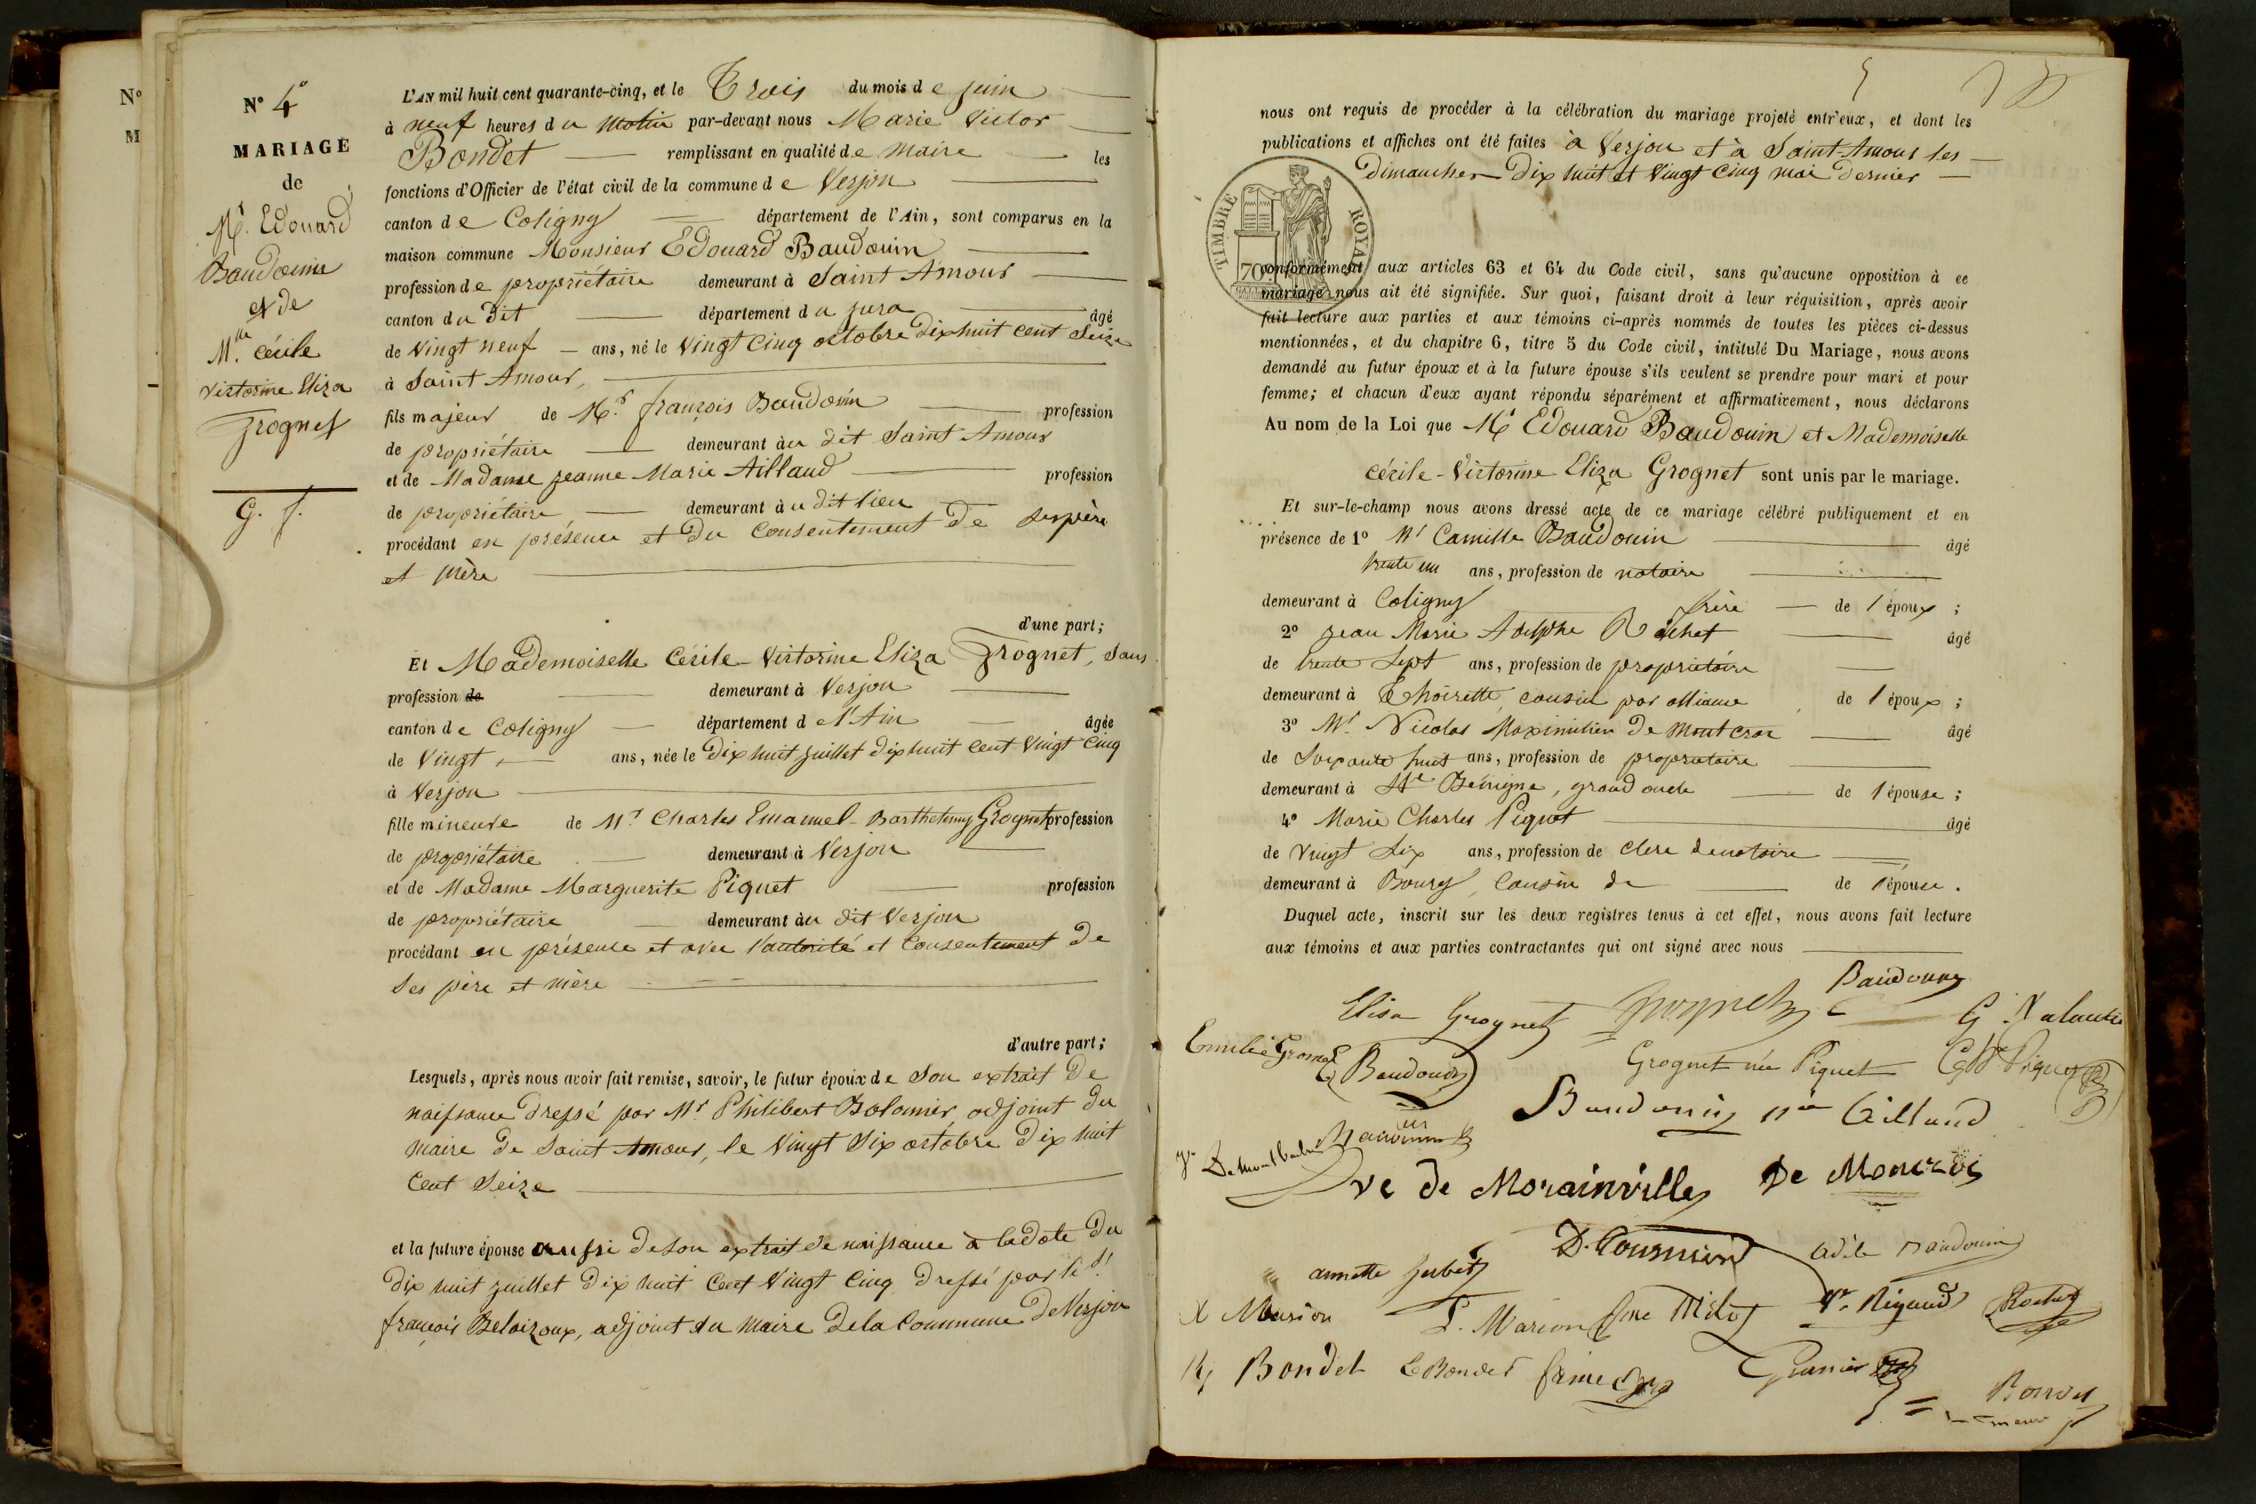 N° 4
MARIAGE
de
Mr. Edouard
Baudouin
et de
Mlle. Cécile
Victorine Eliza
Grognet
G. f.
N°
M
L'AN mil huit cent quarante-cinq, et le Trois du mois de juin
à neuf heures du matin par-devant nous Marie Victor
Bondet remplissant en qualité de Maire les
fonctions d'Officier de l'état civil de la commune de Verjon
canton de Coligny département de l'Ain, sont comparus en la
maison commune Monsieur Edouard Baudouin
profession de propriétaire demeurant à Saint Amour
canton du dit département du jura âgé
de Vingt neuf ans, né le Vingt cinq octobre dix huit cent Seize
à Saint Amour,
fils majeur de Mr. françois Baudouin profession
de propriétaire demeurant au dit Saint Amour
et de Madame jeanne Marie Aillaud profession
de propriétaire demeurant au dit lieu
procédant en présence et du Consentement de ses père
et mère
d'une part;
Et Mademoiselle Cécile Victorine Eliza Grognet, Sans
profession de demeurant à Verjon
canton de Coligny département de l'Ain âgée
de Vingt ans, née le dix huit juillet dix huit cent Vingt cinq
à Verjon
fille mineure de Mr. Charles Emanuel Barthelemy Grognet profession
de propriétaire demeurant à Verjon
et de Madame Marguerite Piquet profession
de propriétaire demeurant au dit Verjon
procédant en présence et avec l'autorité et Consentement de
Ses père et mère
d'autre part;
Lesquels, après nous avoir fait remise, savoir, le futur époux de Son extrait de
naissance dressé par Mr Philibert Bolomier, adjoint du
maire de Saint Amour, le Vingt Six octobre dix huit
Cent Seize
et la future épouse aussi de Son extrait de naissance à la date du
dix huit juillet dix huit Cent Vingt Cinq dressé par le dt.
françois Beloizoux, adjoint du Maire de la Commune de Verjon
5
nous ont requis de procéder à la célébration du mariage projeté entr'eux, et dont les
publications et affiches ont été faites à Verjon et à Saint-Amour les
dimanches dix huit et Vingt Cinq mai dernier
TIMBRE ROYAL
70
conformément aux articles 63 et 64 du Code civil, sans qu'aucune opposition à ce
mariage nous ait été signifiée. Sur quoi, faisant droit à leur réquisition, après avoir
fait lecture aux parties et aux témoins ci-après nommés de toutes les pièces ci-dessus
mentionnées, et du chapitre 6, titre 5 du Code civil, intitulé Du Mariage, nous avons
demandé au futur époux et à la future épouse s'ils veulent se prendre pour mari et pour
femme; et chacun d'eux ayant répondu séparément et affirmativement, nous déclarons
Au nom de la Loi que Mr Edouard Baudouin et Mademoiselle
Cécile-Victorine Eliza Grognet sont unis par le mariage.
Et sur-le-champ nous avons dressé acte de ce mariage célébré publiquement et en
présence de 1° Mr Camille Baudouin âgé
trente un ans, profession de notaire
demeurant à Coligny frère de l'époux ;
2° jean Marie Adolphe Rochet âgé
de trente Sept ans, profession de propriétaire
demeurant à Thoirette, cousin par alliance de l'époux ;
3° Mr. Nicolas Maximilien de Montcroc âgé
de Soixante huit ans, profession de propriétaire
demeurant à St Bénigne, grand oncle de l'épouse ;
4° Marie Charles Piquet âgé
de Vingt Six ans, profession de clerc de notaire
demeurant à Bourg, Cousin de de l'épouse.
Duquel acte, inscrit sur les deux registres tenus à cet effet, nous avons fait lecture
aux témoins et aux parties contractantes qui ont signé avec nous
Baudouin
Elisa Grognet Grognet G.
Emilie E Baudouin Grognet née Piquet Piquet
Baudouin née Aillaud
ve de Morainville De Moncroc
Annette Adèle Baudouin
Marion L. Marion Rigaud Rochet
Bondet Bondet
Bondet